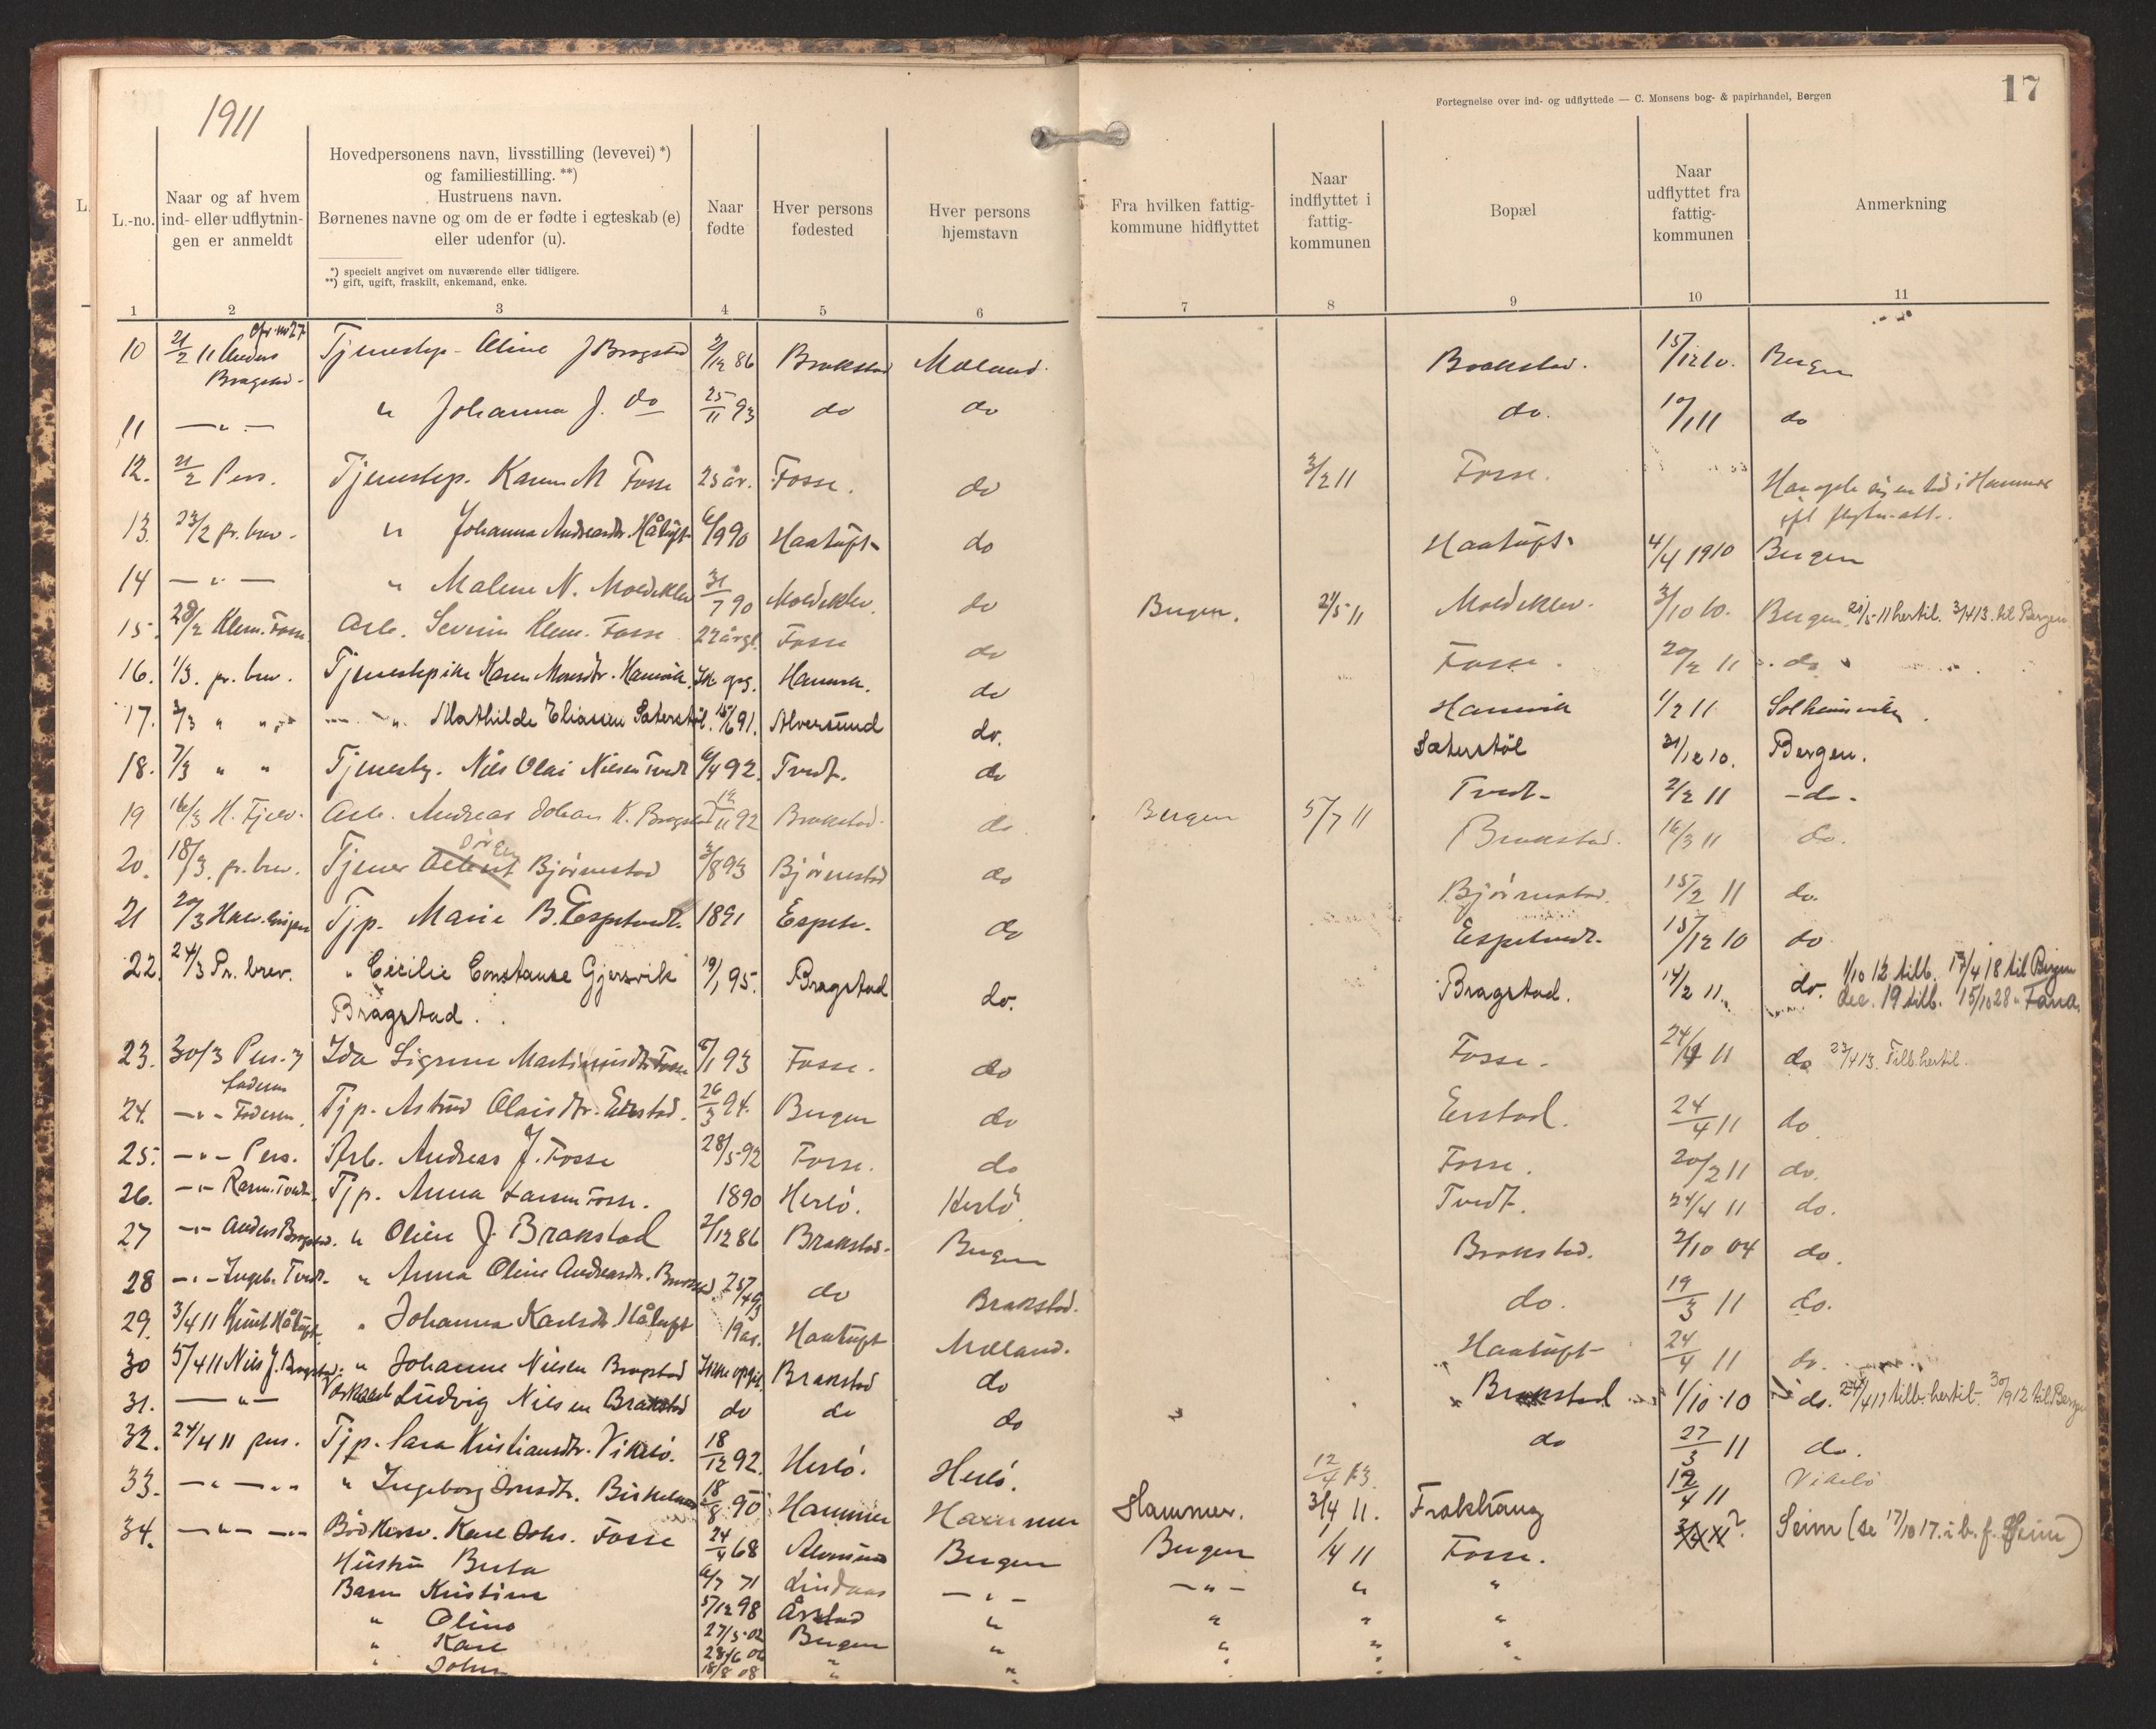 1911
17
Fortegnelse over ind- og udflyttede — C. Monsens bog- & papirhandel, Bergen
L.-no.
Naar og af hvem ind- eller udflytnin-gen er anmeldt
Hovedpersonens navn, livsstilling (levevei) *)
og familiestilling. **)
Hustruens navn.
Børnenes navne og om de er fødte i egteskab (e)
eller udenfor (u).
*) specielt angivet om nuværende eller tidligere.
**) gift, ugift, fraskilt, enkemand, enke.
Naar fødte
Hver persons fødested
Hver persons hjemstavn
Fra hvilken fattig-kommune hidflyttet
Naar indflyttet i fattig-kommunen
Bopæl
Naar udflyttet fra fattig-kommunen
Anmerkning
1 2 3 4 5 6 7 8 9 10 11
10 21/2 11 Anders Bragstad. Cfr. nr 27 Tjenestep. Oline J Bragstad 2/12 86 Brakstad Mæland. Brakstad. 15/12 10. Bergen
11 — " — " Johanna J. do 25/11 93 do do do. 10/1 11 do
12. 21/2 Pers. Tjenestep. Karen M Fosse 23 år. Fosse. do 3/2 11 Fosse. i Hammer
13. 23/2 pr. brev. " Johanna Andreasdr. Håtuft 6/9 90 Haatuft do Haatuft 4/4 1910 Bergen
14 — " — " Malene N. Moldeklev 31/7 90 Moldeklev. do Bergen. 21/5 11 Moldeklev. 3/10 10. Bergen 21/5-11 hertil. 3/4 13. til Bergen
15. 28/2 Klem. Fosse Arb. Severin Klem. Fosse 22 årgl. Fosse do Fosse. 20/2 11 do
16. 1/3. pr. brev. Tjenestepike Karen Monsdr. Hamvik. Ik. opg. Hamvik. do Hamvik 1/2 11 Solheimsviken.
17. 3/3 " " — " Mathilde Eliassen Sæterstøl. 15/6 91. Alversund do. Sæterstøl 31/12 10. Bergen.
18. 7/3 " " Tjenestg. Nils Olai Nilsen Tvedt 6/4 92. Tvedt. do Tvedt 2/2 11 — do —
19 16/3 H. Fjelv. Arb. Andreas Johan K. Bragstad 12/11 92 Brakstad. do Bergen 5/7 11 Brakstad. 16/3 11 do.
20. 18/3. pr. brev. Tjener Bjørnestad 3/8 93 Bjørnestad do Bjørnestad. 15/2 11 do.
21 20/3 Tjp. Marie B. Espetvedt. 1891 Espetv. do Espetvedt. 15/12 10 do
22. 24/3 Pr. brev. " Cecilie Constanse Gjersvik 19/1 95. Bragstad do. Bragstad. 14/2 11. do. 1/10 12 tilb. 17/4 18 til Bergen
Bragstad. dec. 19 tilb. 15/10 28 " Fana.
23. 30/3 Pers. & faderen Ida Sigrune Martinusdtr. Fosse 8/1 93 Fosse. do Fosse. 24/4 11 do 23/4 13. Tilb. hertil.
24. — " — Faderen. Tjp. Astrid Olaisdtr. Eikstad. 26/3 94. Bergen do Eikstad. 24/4 11 do
25. — " — Pers. Arb. Andreas J. Fosse 28/5 92 Fosse. do Fosse. 20/2 11 do.
26. — " — Rasm. Tvedt. Tjp. Anna Larsen Fosse. 1890 Herlø. Herlø Tvedt. 24/4 11 do.
27 — " — Anders Bragstad. " Oline J. Brakstad 2/12 86 Brakstad. Bergen Brakstad. 2/10 04 do.
28 — " — Ingeb. Tvedt. " Anna Oline Andreasdr. Brakstad 25/4 93 do Brakstad. do. 19/3 11 do.
29. 3/4 11 Knut Håtuft. " Johanna Karlsdr. Håtuft 19 år. Haatuft Mæland. Haatuft 24/4 11 do.
30 5/4 11 Nils J. Bragstad. " Johanne Nilsen Bragstad Ikke opgit. Brakstad do Brakstad 1/10-10 do. 24/4 11 tilb. hertil. 30/9 12 til Bergen
31. — " — Ludvig Nilsen Brakstad do do do do 27/3 11 do.
32. 24/4 11 pers. Tjp. Sara Kristiansdtr. Vikelø. 18/12 92. Herlø. Herlø. 12/4 13. 12/4 11 Vikelø
33. — " — " Ingeborg Birkeland 18/8 90 Hammer Hammer Hammer. 3/4 11. Frækhaug 3/4 11? Seim (se 17/10 17. i b. f. Seim)
34. — " — Bødkersv. Karl Johs. Fosse 24/4 68 Alversund Bergen Bergen 1/4 11 Fosse.
Hustru Berta 6/7 71 Lindaas — " — — " — " "
Barn Kristine 5/12 98 Årstad " " " "
" Oline 27/5-02 Bergen " " " "
" Karl 28/6 06 " " " "
" Johs 18/8 08 " "